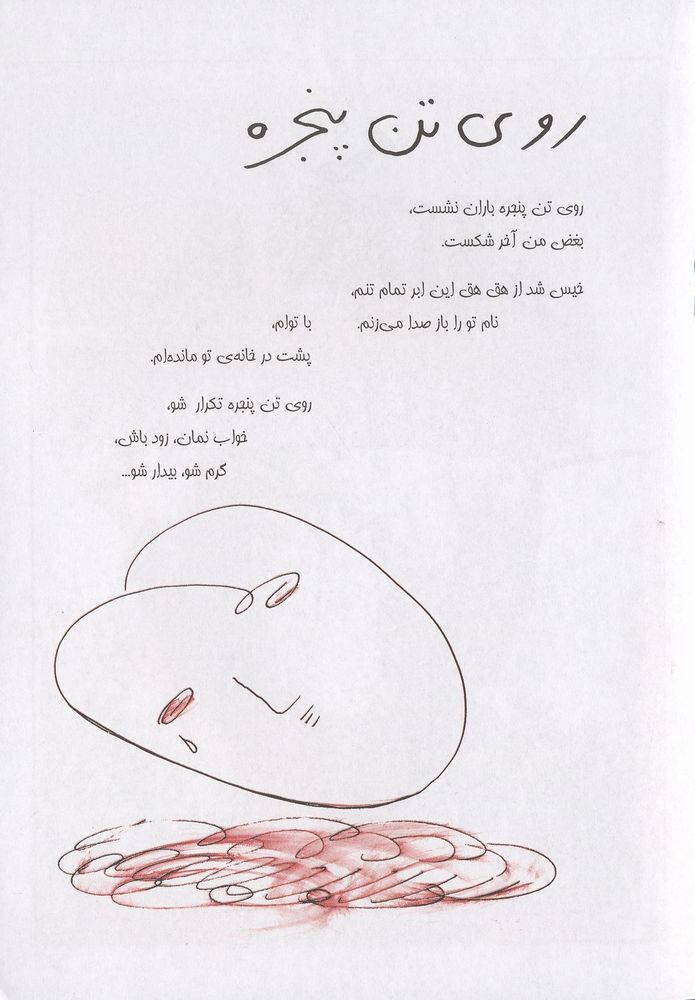 روی تن پنجره
روی تن پنجره باران نشست،
بغض من آخر شکست.
خیس شد از هق هق این ابر تمام تنم،
نام تو را باز صدا می‌زنم.
با توام،
پشت در خانه‌ی تو مانده‌ام.
روی تن پنجره تکرار شو،
خواب نمان، زود باش،
گرم شو، بیدار شو...